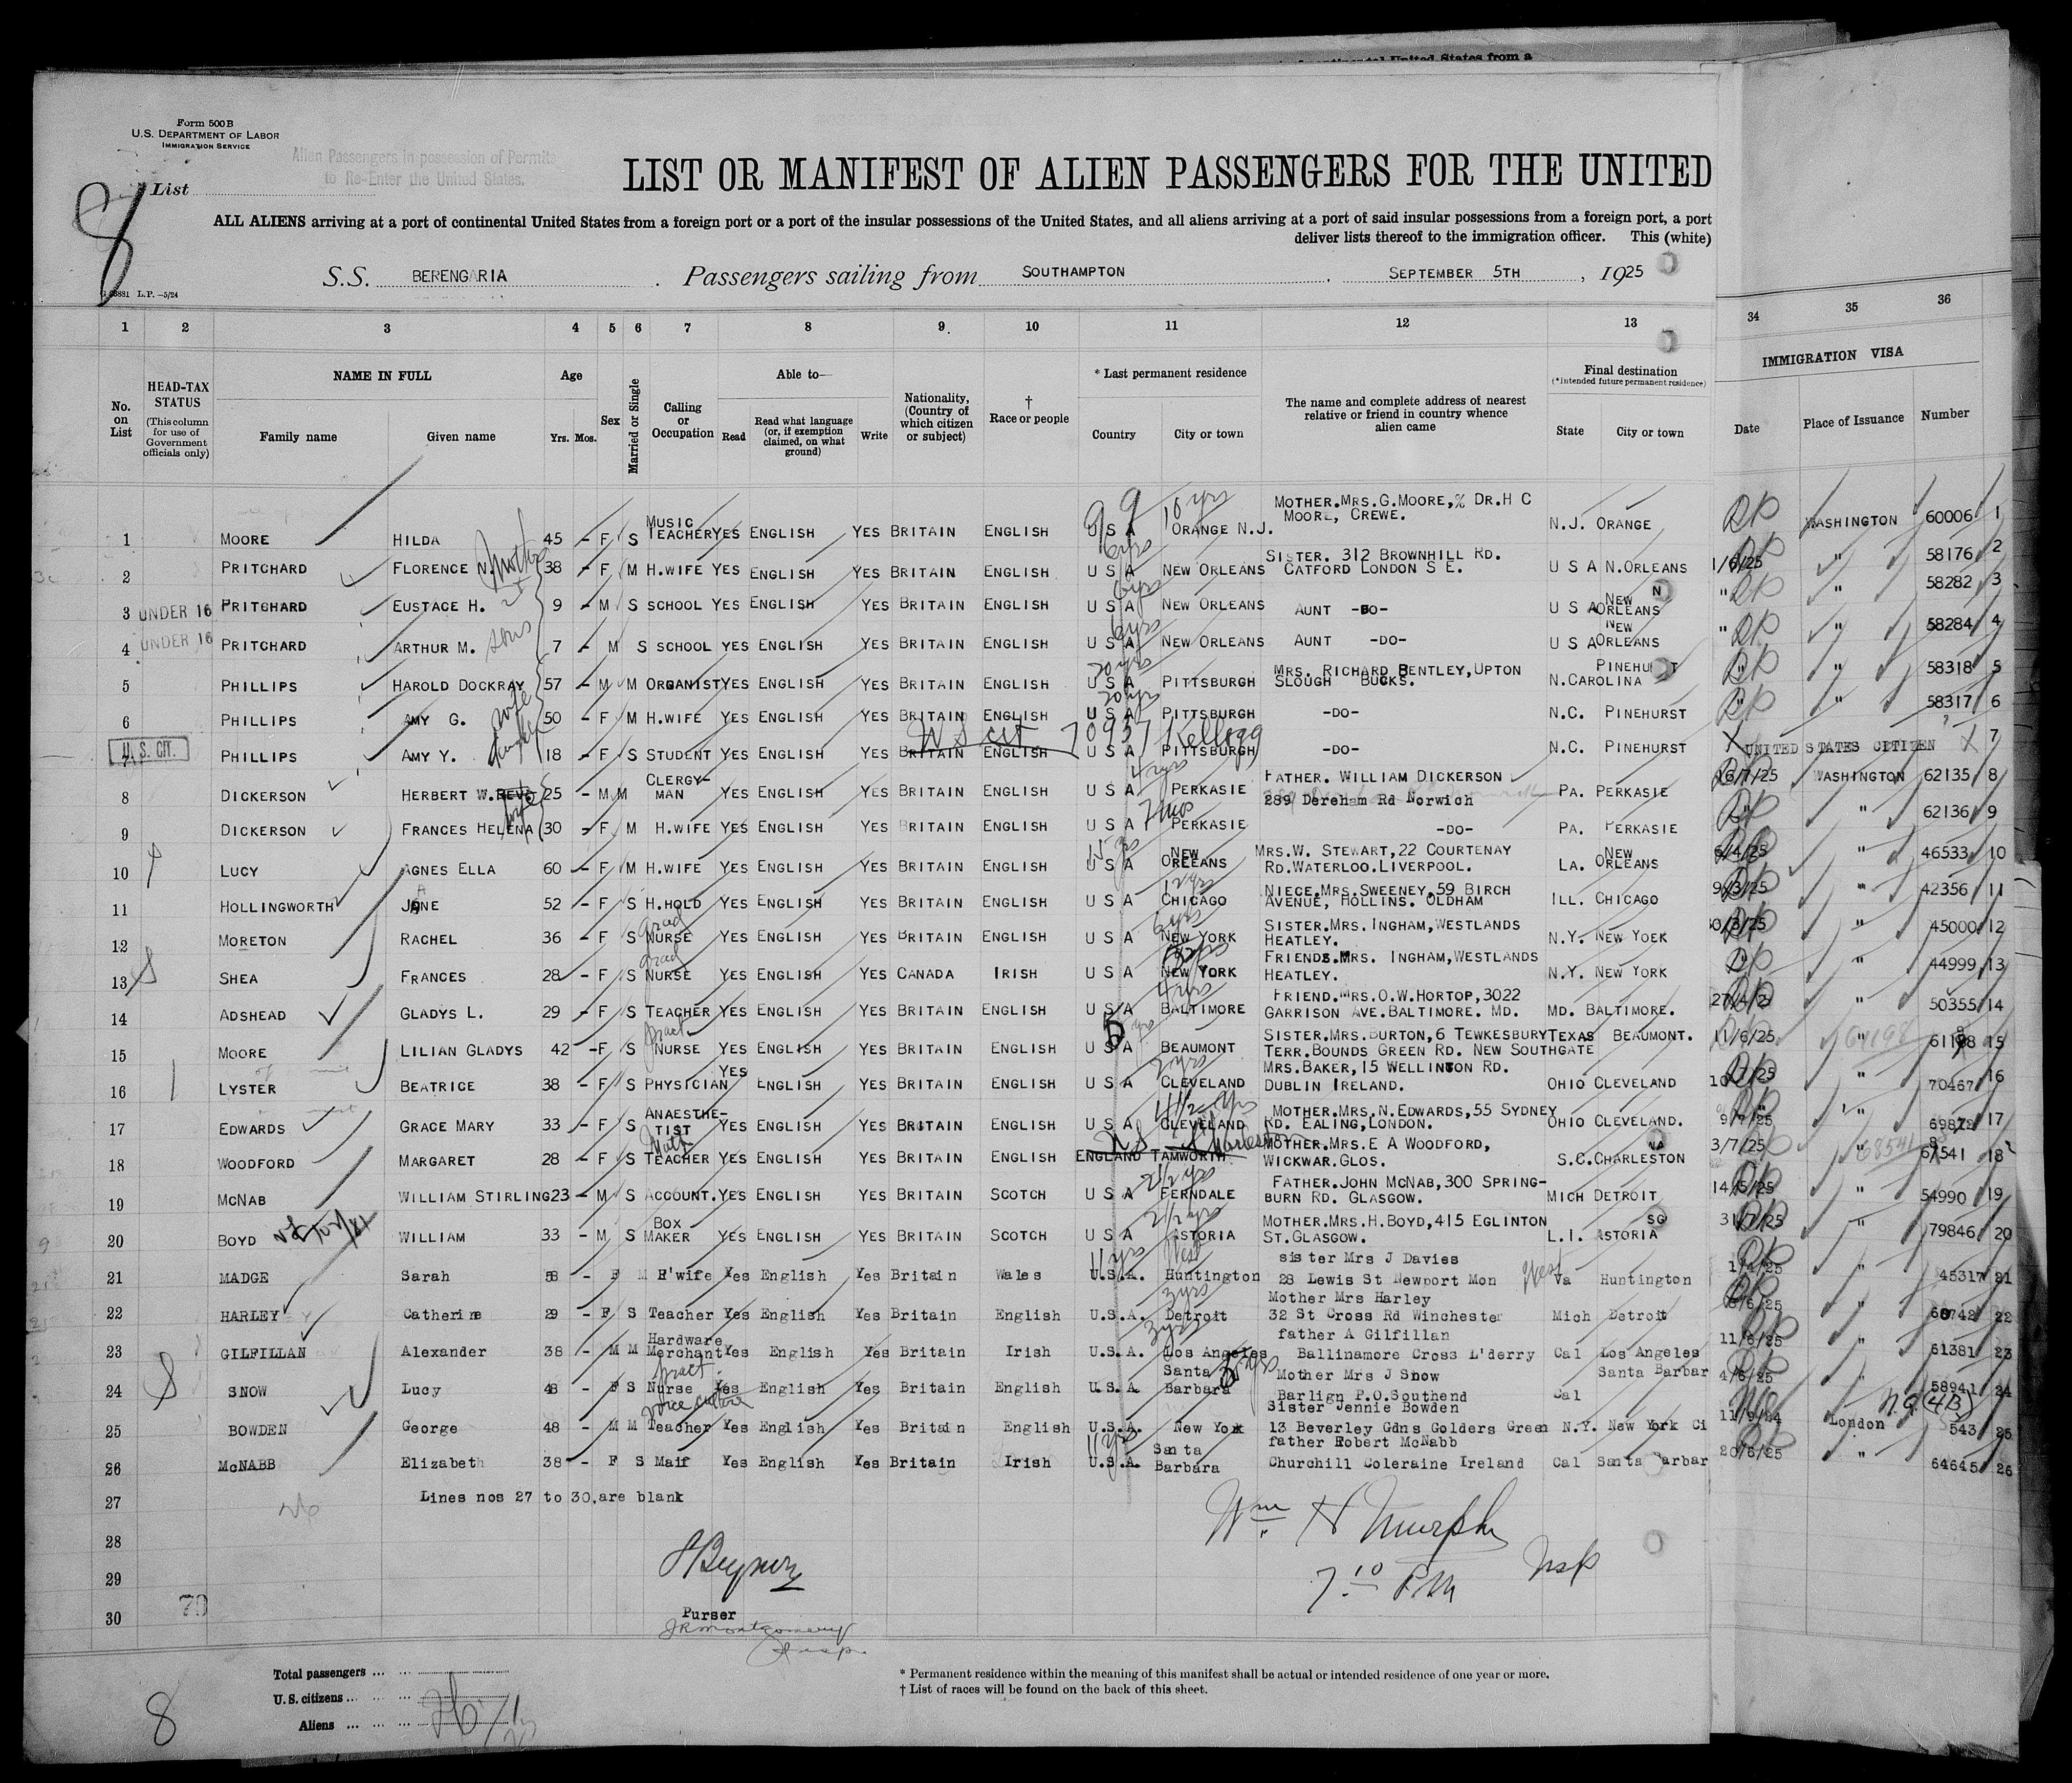 continental United States from a
Form 500B
U.S. DEPARTMENT OF LABOR
IMMIGRATION SERVICE
Alien Passengers in possession of Permits
to Re-Enter the United States.
List
8
LIST OR MANIFEST OF ALIEN PASSENGERS FOR THE UNITED
ALL ALIENS arriving at a port of continental United States from a foreign port or a port of the insular possessions of the United States, and all aliens arriving at a port of said insular possessions from a foreign port, a port
deliver lists thereof to the immigration officer. This (white)
S.S. BERENGARIA. Passengers sailing from SOUTHAMPTON. SEPTEMBER 5TH, 1925
L.P.—5/24
1 2 3 4 5 6 7 8 9. 10 11 12 13 34 35 36
No. on List
HEAD-TAX STATUS
(This column for use of Government officials only)
NAME IN FULL
Family name Given name
Age
Yrs. Mos.
Sex
Married or Single
Calling or Occupation
Able to—
Read Read what language (or, if exemption claimed, on what ground) Write
Nationality, (Country of which citizen or subject)
† Race or people
* Last permanent residence
Country City or town
The name and complete address of nearest relative or friend in country whence alien came
Final destination
(*Intended future permanent residence)
State City or town
IMMIGRATION VISA
Date Place of Issuance Number
1 MOORE HILDA 45 - F S MUSIC TEACHER YES ENGLISH YES BRITAIN ENGLISH U S A 10 yrs ORANGE N.J. MOTHER.MRS.G.MOORE,% DR.H C MOORE, CREWE. N.J. ORANGE WASHINGTON 60006 1
2 PRITCHARD FLORENCE N. Mother 38 - F M H.WIFE YES ENGLISH YES BRITAIN ENGLISH U S A 6yrs NEW ORLEANS SISTER. 312 BROWNHILL RD. CATFORD LONDON S E. U S A N.ORLEANS 1/6/25 " 58176 2
3 UNDER 16 PRITCHARD EUSTACE H. 9 - M S SCHOOL YES ENGLISH YES BRITAIN ENGLISH U S A 6yrs NEW ORLEANS AUNT -DO- U S A NEW ORLEANS " " 58282 3
4 UNDER 16 PRITCHARD ARTHUR M. sons 7 - M S SCHOOL YES ENGLISH YES BRITAIN ENGLISH U S A 6yrs NEW ORLEANS AUNT -DO- U S A NEW ORLEANS " " 58284 4
5 PHILLIPS HAROLD DOCKRAY 57 - M M ORGANIST YES ENGLISH YES BRITAIN ENGLISH U S A 20 yrs PITTSBURGH MRS. RICHARD BENTLEY,UPTON SLOUGH BUCKS. N.CAROLINA PINEHURST " " 58318 5
6 PHILLIPS AMY G. wife 50 - F M H.WIFE YES ENGLISH YES BRITAIN ENGLISH U S A 20yrs PITTSBURGH -DO- N.C. PINEHURST " " 58317 6
7 U.S. CIT. PHILLIPS AMY Y. 18 - F S STUDENT YES ENGLISH YES BRITAIN ENGLISH U S cit Kellogg U S A PITTSBURGH -DO- N.C. PINEHURST X UNITED STATES CITIZEN X 7
8 DICKERSON HERBERT W.REVD 25 - M M CLERGY-MAN YES ENGLISH YES BRITAIN ENGLISH U S A 4 yrs PERKASIE FATHER. WILLIAM DICKERSON 289 Dereham Rd Norwich PA. PERKASIE 16/7/25 WASHINGTON 62135 8
9 DICKERSON FRANCES HELENA wife 30 - F M H.WIFE YES ENGLISH YES BRITAIN ENGLISH U S A 7 mos PERKASIE -DO- PA. PERKASIE " " 62136 9
10 LUCY AGNES ELLA 60 - F M H.WIFE YES ENGLISH YES BRITAIN ENGLISH U S A NEW ORLEANS MRS.W. STEWART,22 COURTENAY RD.WATERLOO.LIVERPOOL. LA. NEW ORLEANS 6/4/25 " 46533 10
11 HOLLINGWORTH JANE 52 - F S H.HOLD YES ENGLISH YES BRITAIN ENGLISH U S A 12 yrs CHICAGO NIECE.MRS.SWEENEY,59 BIRCH AVENUE, HOLLINS. OLDHAM ILL. CHICAGO 9/3/25 " 42356 11
12 MORETON RACHEL 36 - F S grad NURSE YES ENGLISH YES BRITAIN ENGLISH U S A 6yrs NEW YORK SISTER.MRS.INGHAM,WESTLANDS HEATLEY. N.Y. NEW YOEK 30/3/25 " 45000 12
13 SHEA FRANCES 28 - F S grad NURSE YES ENGLISH YES CANADA IRISH U S A NEW YORK FRIENDS.MRS. INGHAM,WESTLANDS HEATLEY. N.Y. NEW YORK " " 44999 13
14 ADSHEAD GLADYS L. 29 - F S TEACHER YES ENGLISH YES BRITAIN ENGLISH U S A 4 yrs BALTIMORE FRIEND.MRS.O.W.HORTOP,3022 GARRISON AVE.BALTIMORE. MD. MD. BALTIMORE. " 50355 14
15 MOORE LILIAN GLADYS 42 -F S pract NURSE YES ENGLISH YES BRITAIN ENGLISH U S A BEAUMONT SISTER.MRS.BURTON,6 TEWKESBURY TERR.BOUNDS GREEN RD. NEW SOUTHGATE TEXAS BEAUMONT. 11/6/25 " 61198 15
16 LYSTER BEATRICE 38 - F S PHYSICIAN YES ENGLISH YES BRITAIN ENGLISH U S A 2yrs CLEVELAND MRS.BAKER,15 WELLINTON RD. DUBLIN IRELAND. OHIO CLEVELAND " 70467 16
17 EDWARDS GRACE MARY 33 - F S ANAESTHE-TIST YES ENGLISH YES BRITAIN ENGLISH U S A 1 1/2 yrs CLEVELAND MOTHER.MRS.N.EDWARDS,55 SYDNEY RD. EALING,LONDON. OHIO CLEVELAND. 9/7/25 " 17
18 WOODFORD MARGARET 28 - F S Math TEACHER YES ENGLISH YES BRITAIN ENGLISH ENGLAND TAMWORTH US Charleston MOTHER.MRS.E A WOODFORD, WICKWAR.GLOS. S.C.CHARLESTON 3/7/25 68541 " 67541 18
19 McNAB WILLIAM STIRLING 23 - M S ACCOUNT. YES ENGLISH YES BRITAIN SCOTCH U S A 2 1/2 yrs FERNDALE FATHER.JOHN McNAB,300 SPRING-BURN RD. GLASGOW. MICH DETROIT 14/5/25 " 54990 19
20 BOYD WILLIAM 33 - M S BOX MAKER YES ENGLISH YES BRITAIN SCOTCH U S A 2 1/2 yrs ASTORIA MOTHER.MRS.H.BOYD,415 EGLINTON ST.GLASGOW. L.I. ASTORIA 31/7/25 " 79846 20
21 MADGE Sarah 58 - F M H'wife Yes English Yes Britain Wales U.S.A. 11 yrs West Huntington sister Mrs J Davies 28 Lewis St Newport Mon West Va Huntington " 45317 21
22 HARLEY Catherine 29 - F S Teacher Yes English Yes Britain English U.S.A. 3yrs Detroit Mother Mrs Harley 32 St Cross Rd Winchester Mich Detroit " 60742 22
23 GILFILLAN Alexander 38 - M M Hardware Merchant Yes English Yes Britain Irish U.S.A. 3yrs Los Angeles father A Gilfillan Ballinamore Cross L'derry Cal Los Angeles 11/6/25 " 61381 23
24 SNOW Lucy 48 - F S pract. Nurse Yes English Yes Britain English U.S.A. Santa Barbara Mother Mrs J Snow Barlign P.O.Southend Cal Santa Barbar 4/6/25 " 58941 24
25 BOWDEN George 48 - M M voice culture Teacher Yes English Yes Britain English U.S.A. New York Sister Jennie Bowden 13 Beverley Gdns Golders Green N.Y. New York Ci 11/9/24 London N.Q.(4B) 543 25
26 McNABB Elizabeth 38 - F S Maif Yes English Yes Britain Irish U.S.A. 11 yrs Santa Barbara father Robert McNabb Churchill Coleraine Ireland Cal Santa Barbar 20/6/25 " 64645 26
27 Lines nos 27 to 30,are blank
28 Wm H Murphy
29 7 10 P.M Insp
30 70
Purser
JRMontgomery
Insp.
Total passengers
U.S. citizens
Aliens
26/1
8
* Permanent residence within the meaning of this manifest shall be actual or intended residence of one year or more.
† List of races will be found on the back of this sheet.